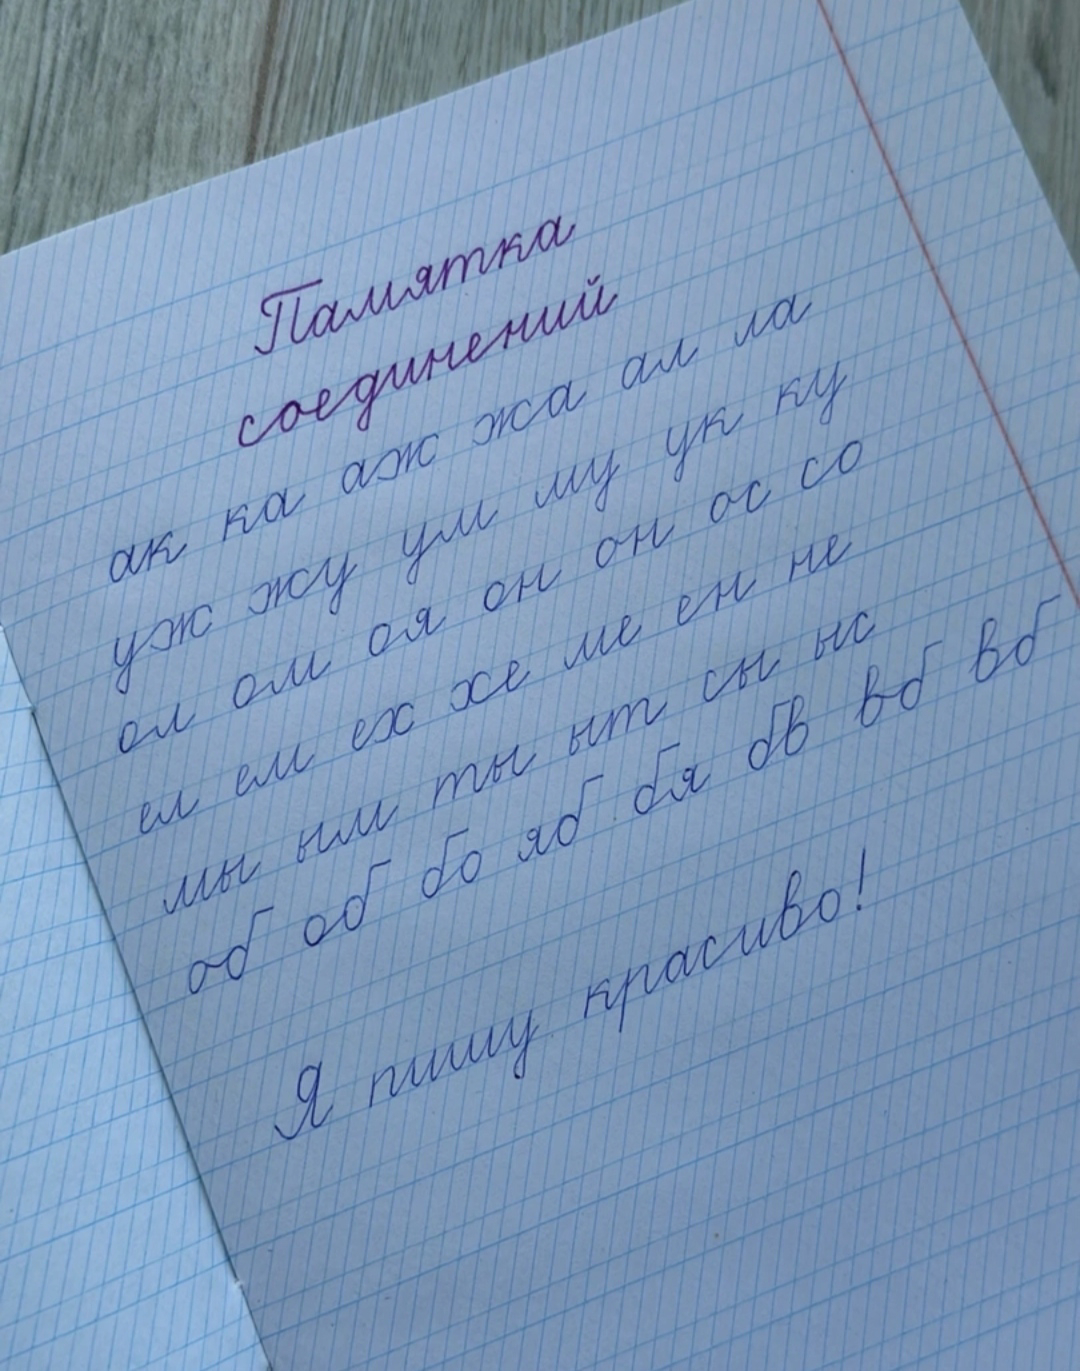 Памятка
соединений
ак ка аж жа ал ла
уж жу ум му ук ку
ол ом оя он он ос со
ел ем ех хе ме ен не
мы ым ты ыт сы ыс
об об бо яб бя бв вб вб
Я пишу красиво!